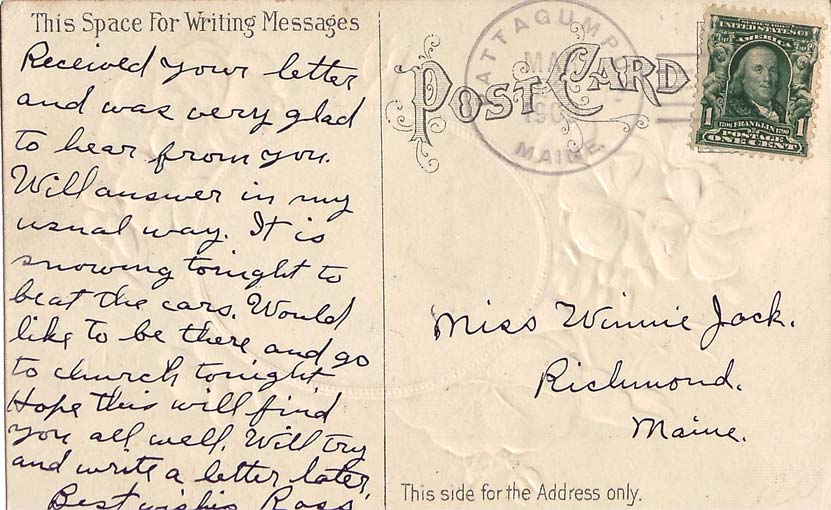 This Space For Writing Messages
Received your letter
and was very glad
to hear from you.
Will answer in my
usual way. It is
snowing tonight to
beat the cars. Would
like to be there and go
to church tonight
Hope this will find
you all well. Will try
and write a letter later.
Best wishes Ross
POST CARD
MAINE.
UNITED STATES OF
AMERICA
1 1
1706 FRANKLIN 1790
POSTAGE
ONE CENT
Miss Winnie Jack.
Richmond.
Maine.
This side for the Address only.